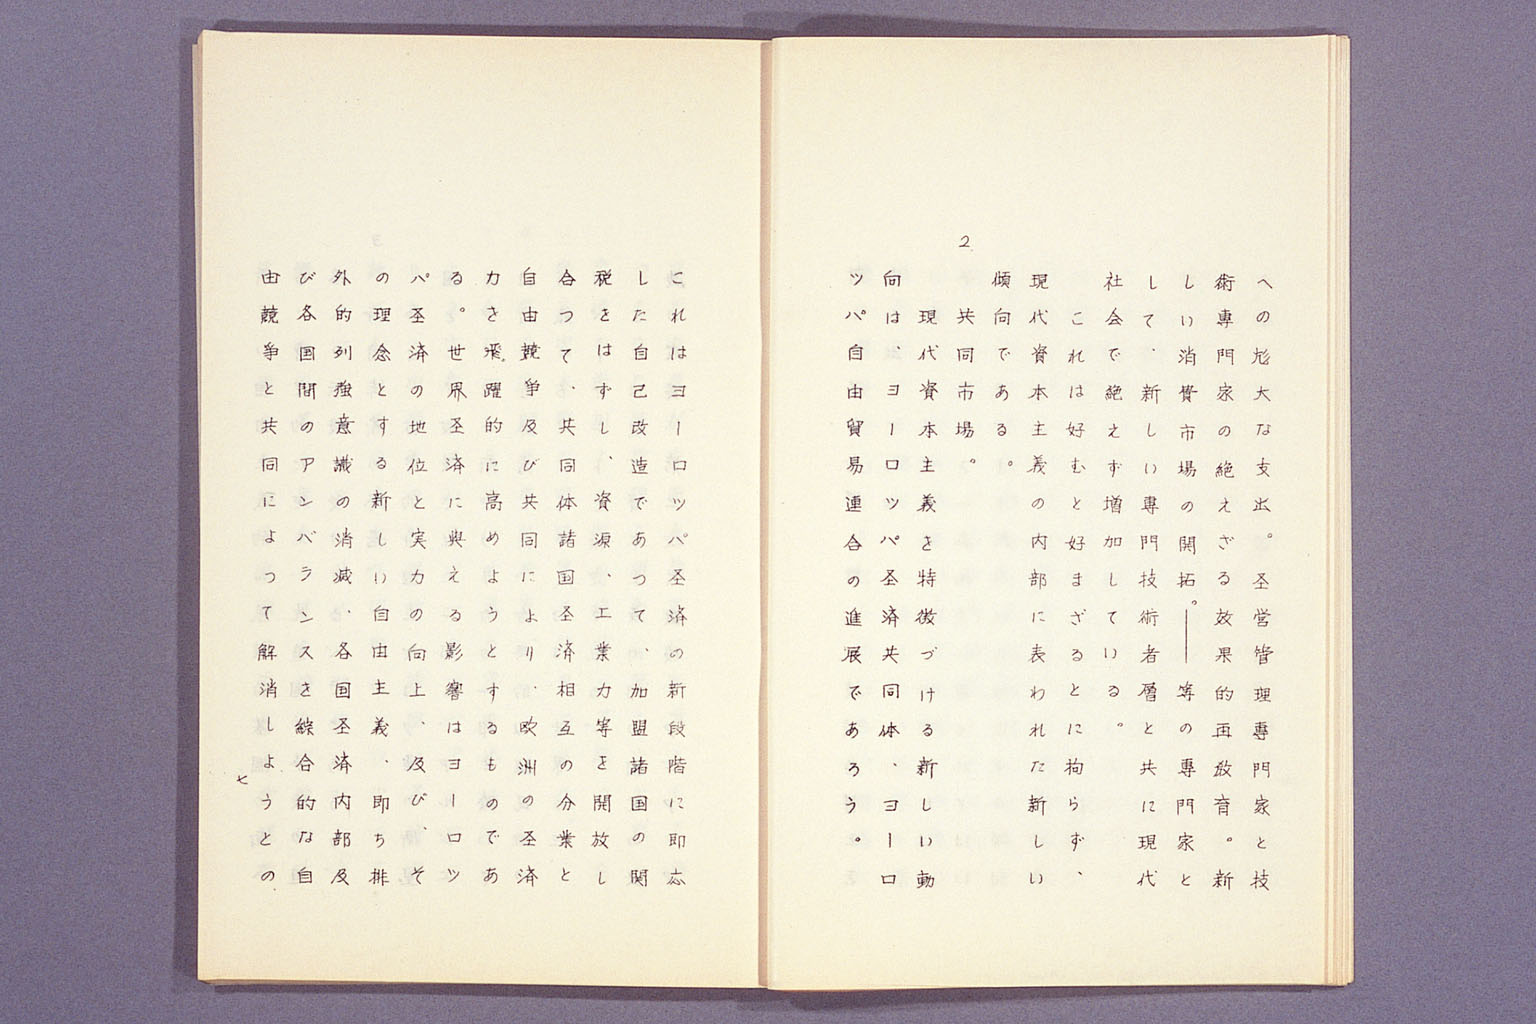 への尨大な支出。圣営管理専門家と技
術専門家の絶えざる効果的再教育。新
しい消費市場の開拓。――等の専門家と
して、新しい専門技術者層と共に現代
社会で絶えず増加している。
これは好むと好まざるとに拘らず、
現代資本主義の内部に表われた新しい
傾向である。
2
共同市場。
現代資本主義を特徴づける新しい動
向は、ヨーロッパ圣済共同体、ヨーロ
ッパ自由貿易連合の進展であろう。
これはヨーロッパ圣済の新段階に即応
した自己改造であって、加盟諸国の関
税をはずし、資源、工業力等を開放し
合って、共同体諸国圣済相互の分業と
自由競争及び共同により、欧洲の圣済
力を飛躍的に高めようとするものであ
る。世界圣済に與える影響はヨーロッ
パ圣済の地位と実力の向上、及び、そ
の理念とする新しい自由主義、即ち排
外的列強意識の消滅、各国圣済内部及
び各国間のアンバランスを綜合的な自
由競争と共同によって解消しようとの
七